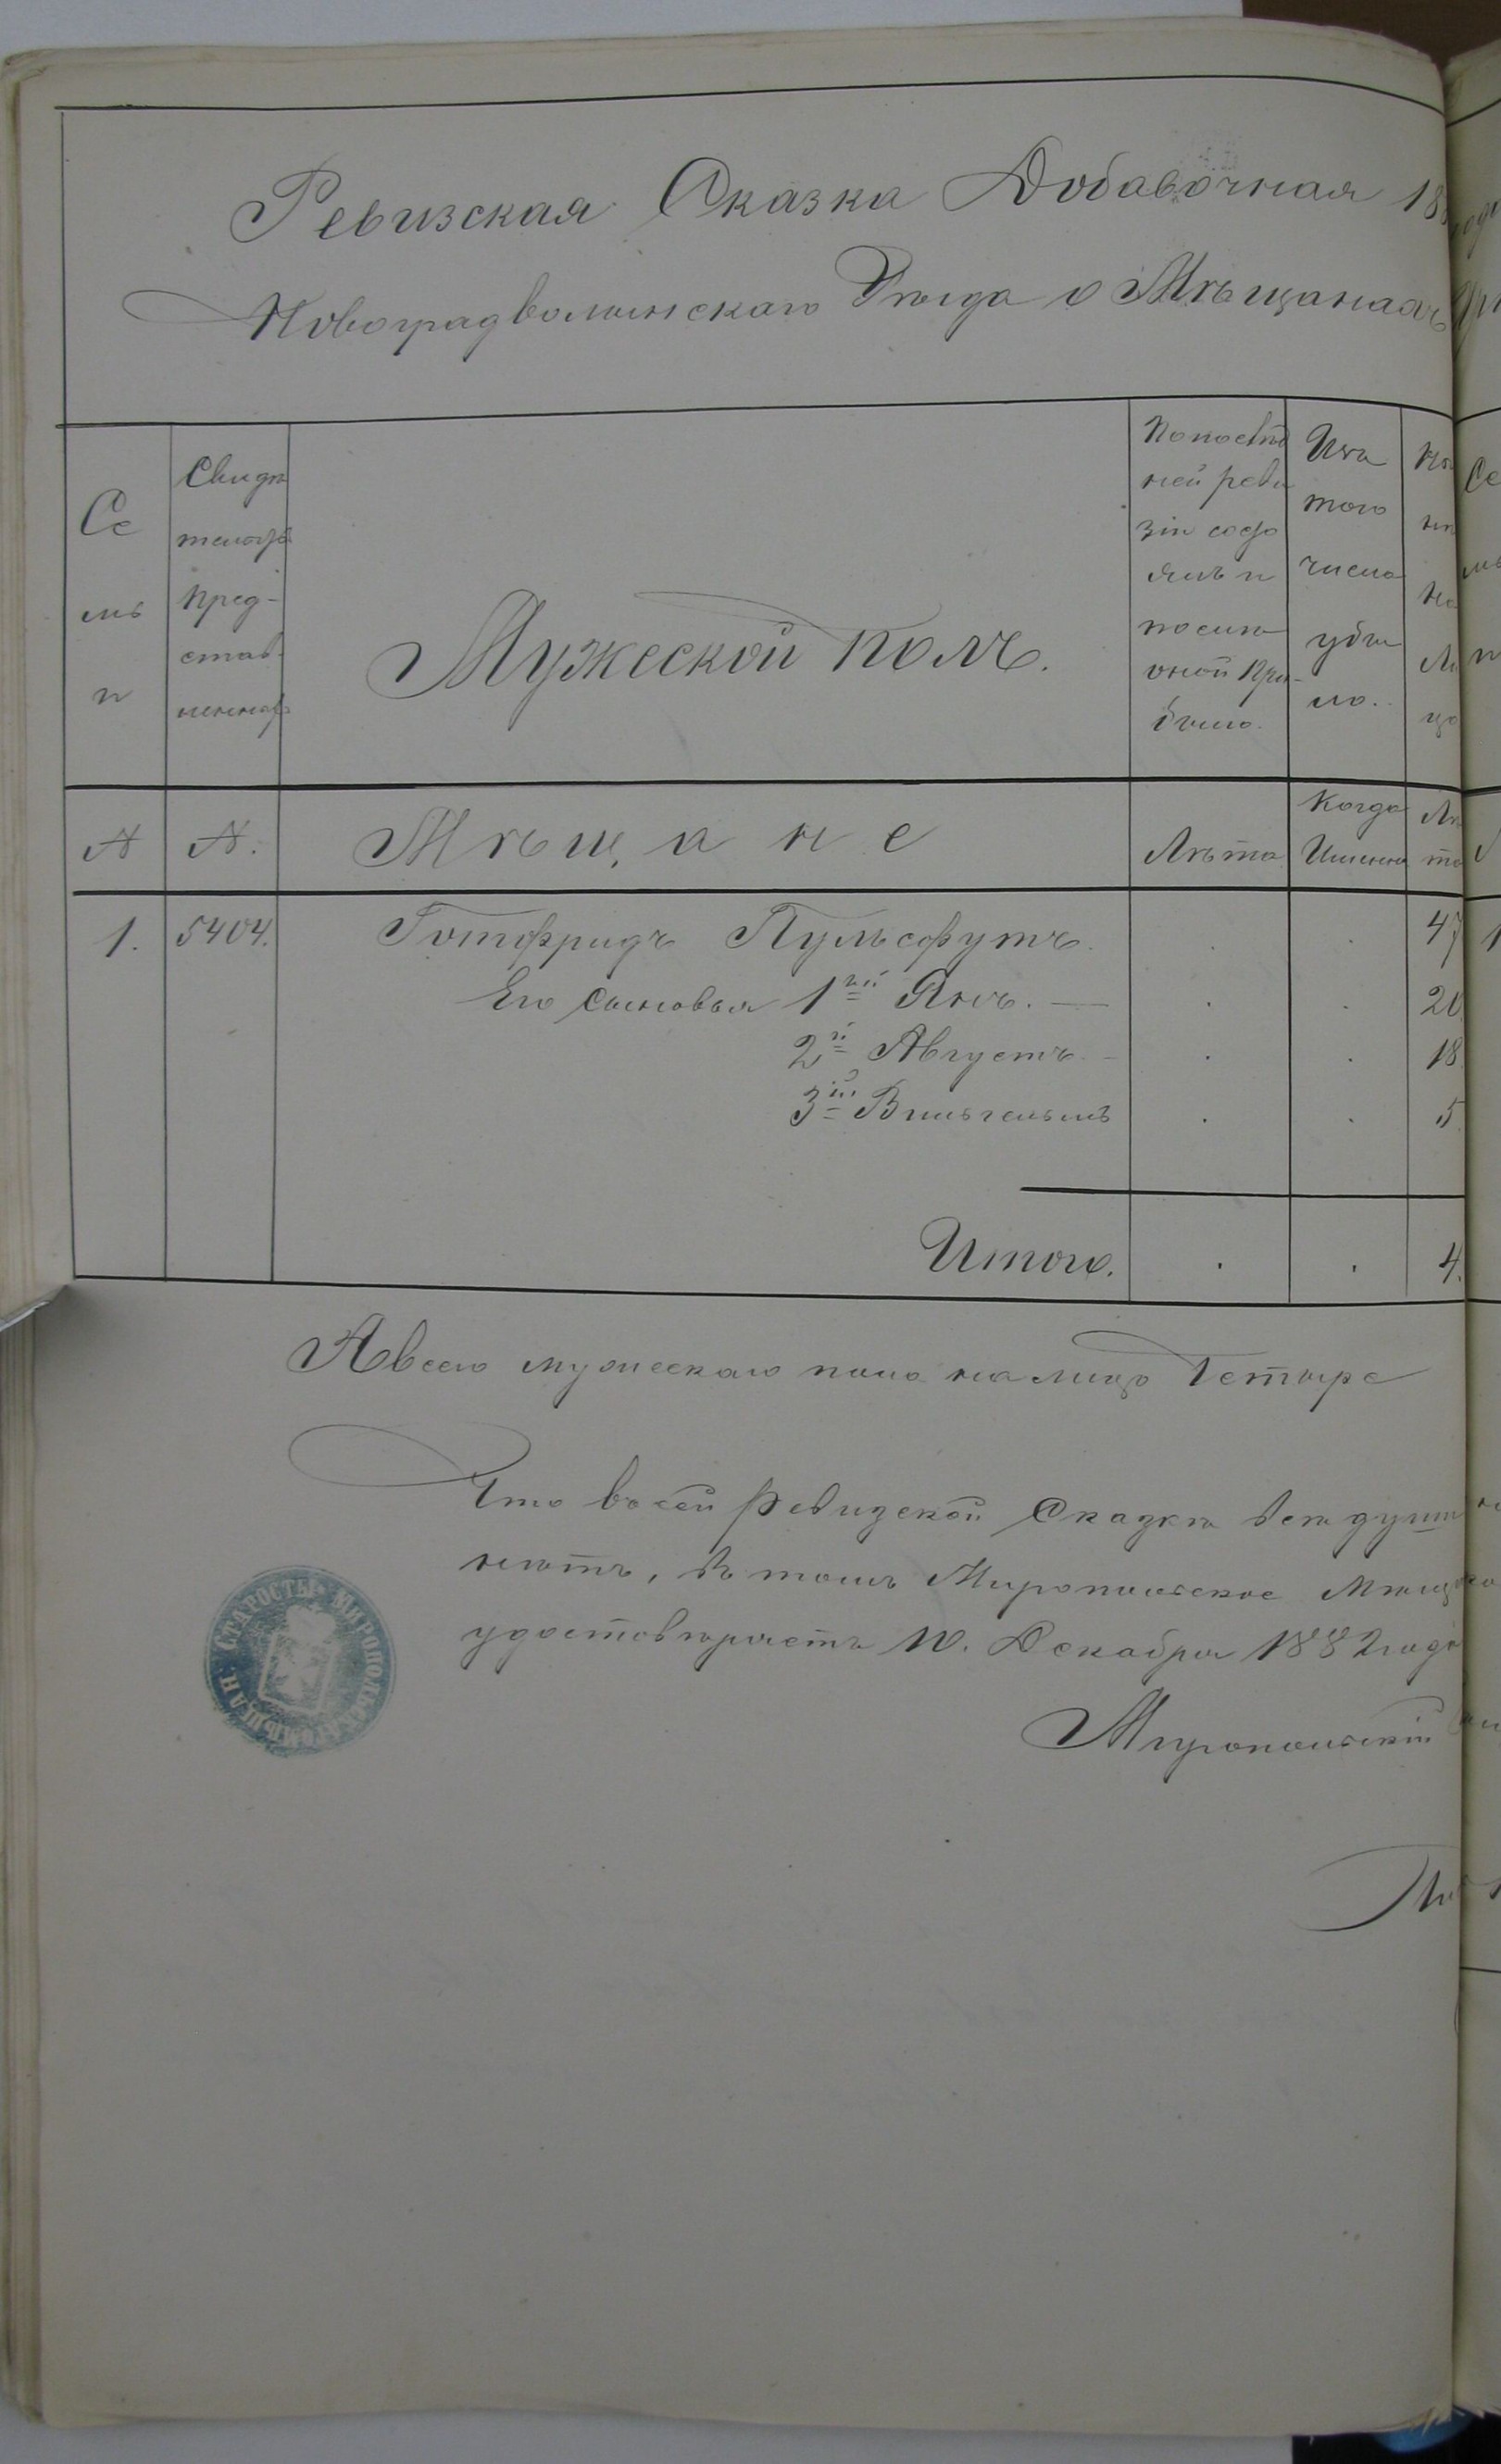 Ревизская Сказка Добавочная 18
Новоградволынскаго Уѣзда о Мѣщанахъ
Се
мь
и
Свидѣ
тельства
пред-
став-
ленные
Мужеской полъ.
По послѣд
ней реви
зіи состо
яло и
послѣ
оной при-
было.
Изъ
того
числа
убы
ло.
Ны
нѣ
на
ли
цо
№ №. Мѣщане Лѣта Когда Именно Лѣ та
1. 5404. Готфридъ Пульсфутъ . . 47
Его сыновья 1ый Янъ. — . . 20
2й Августъ — . . 18
3ій Вильгельмъ . . 5
Итого. . . 4.
А всего мужескаго пола на лицо Четыре
Что въ сей Ревизской Сказкѣ всѣ души
нютъ, въ томъ Миропольское Мѣщ
удостовѣряетъ 10. Декабря 1882 года
СТАРОСТЫ МИРОПОЛЬСКИХЪ МѢЩАН.
Миропольскій